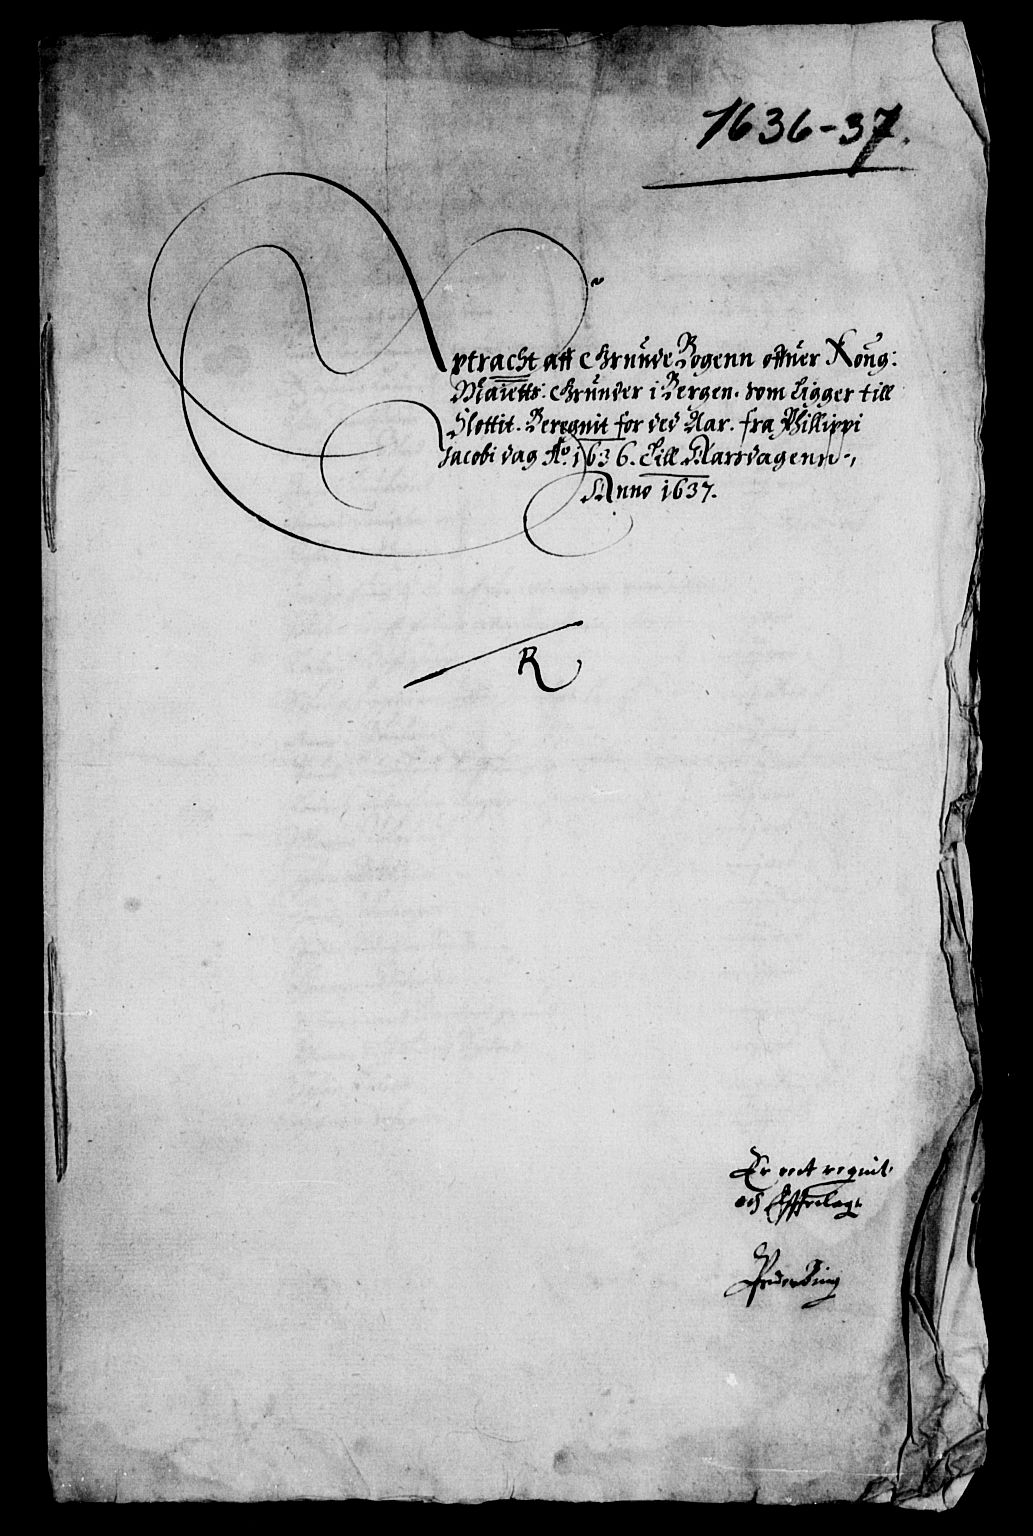 1636-37.
Extracht aff Grunde Bogenn offuer Kong:
Maietts: Grunder i Bergen. som Ligger till
Slottit. Beregnit for ded Aar. fra Phillippi
Jacobi dag Ao. 1636. Till Aarsdagenn.,
Anno 1637.
R
Er rett regnit
och